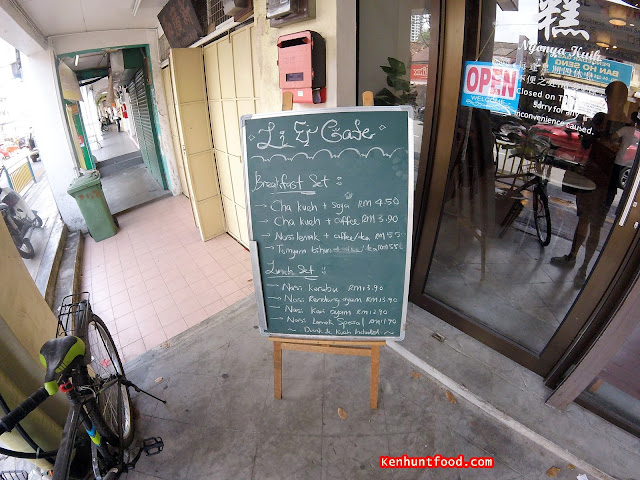 Li Er Cafe
Breakfast Set :
→ Cha kueh + Soya RM 4.50
→ Cha kueh + coffee RM 3.90
→ Nasi lemak + coffee/tea RM5.5
→ Tomyam bihun
Lunch Set :
→ Nasi kerabu RM 13.90
→ Nasi Rendang ayam RM 13.90
→ Nasi Kari ayam RM 12.90
→ Nasi Lemak Spesial RM 11.90
~ Drink & kueh included ~
糕
Nyonya Kuih
BAN HO SENG
OPEN
WELCOME
Closed on
Sorry for any
inconvenience caused.
Kenhuntfood.com